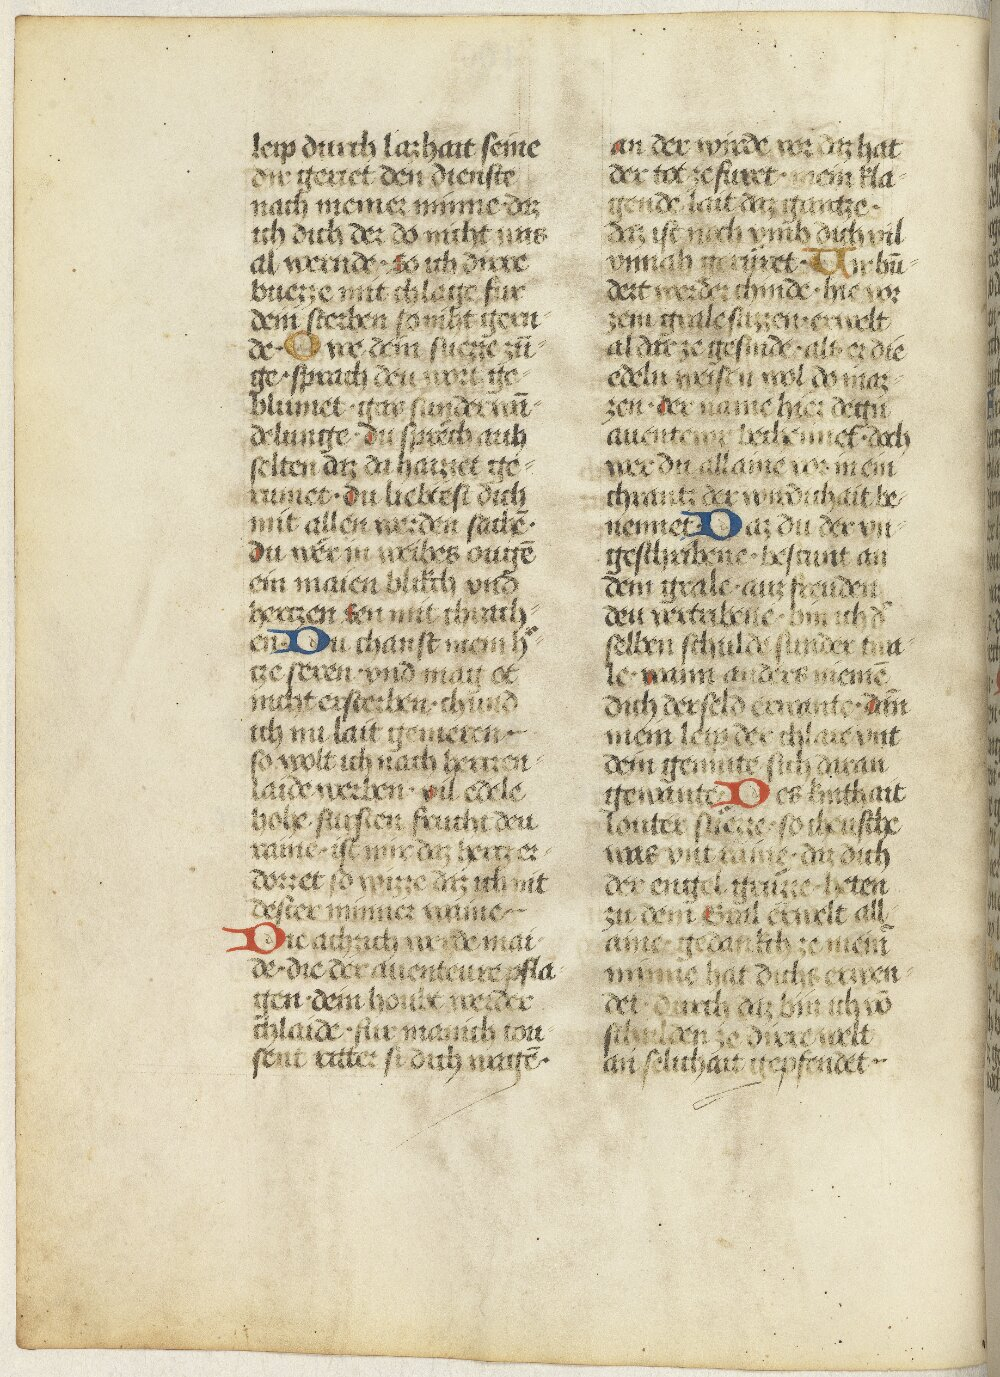 leip durch lazhait seine
dir geriet den dienste
nach meiner minne · daz
ich dich der do nicht uns
al wernde · so ich dirre
buezze mit chlage fur
dem sterben so niht geru-
de · O we dein suezze zů-
ge · sprach deu wort ge-
blumet · gar sunder wā-
delunge · du sprech auh
selten daz da hazzet ge-
rumet · du liebtest dich
mit allen werden sachē ·
du wer in weibes ougē
ein maien blikch vnd
hertzen sen mit chrach-
en · Du chanst mein h'-
tze seren · vnd mag ot
nicht ersterben · chund
ich nu lait gemeren ·
so wolt ich nach hertzen-
laide werben · vil edele
hohe fursten frucht deu
raine · ist mir daz hertz er-
dorret so wizze daz ich nit
dester minner waine ·
Die achzich werde mai-
de · die der auenteure pfla-
gen · dein houbt werder
chlaide · fur manich tou-
sent ritter si dich wagē ·
an der wirde vor daz hat
der tot zefuret · mein kla-
gende lait daz gantze ·
daz ist noch vmb dich vil
vnnah geruret · Vir hū-
dert werder chinde · hie vor
zem grale sazzen · erwelt
al dar ze gesinde · als er die
edeln weisen wol do maz-
zen · der name hiez dirgu
auenteur bechennet · doch
wer du allaine vor mein
chrantz der wirdichait be-
nennet · Daz du der vn-
geschribene · bestunt an
dem grale · auz freuden
deu vertribene · bin ich d'
selben schulde sunder twa-
le · wann anders niemē
dich der seld erwante · dān
mein leip der chlare vnt
dein gemute sich daran
gewante · Des kintheit
louter suezze · so cheusche
was vnt raine · daz dich
der engel gruzze · heten
zu dem Gral erwelt all-
aine · gedankch ze meinr
minne hat dichs erwen-
det · durch daz bin ich vō
schulden ze dirre welt
an selichait gepfendet ·